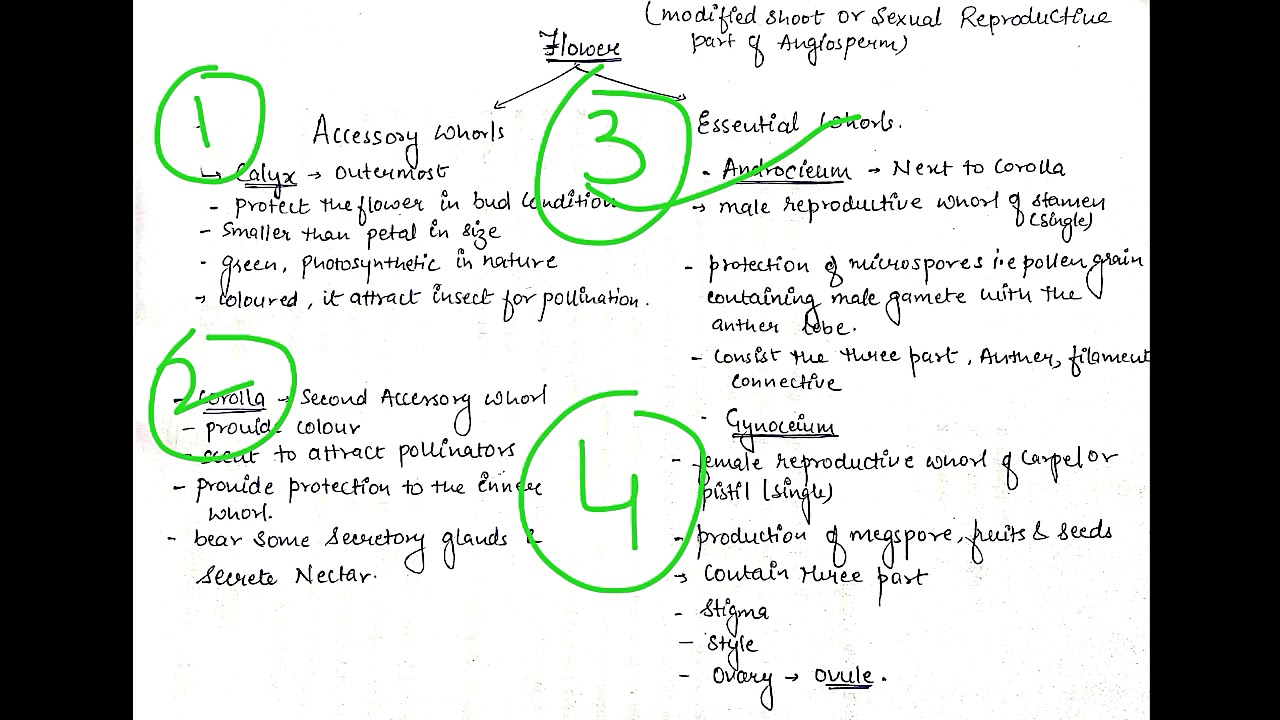 (modified shoot or Sexual Reproductive
part of Angiosperm)
Flower
1
Accessory whorls
Calyx → outermost
- Protect the flower in bud condition
- Smaller than petal in size
- green, photosynthetic in nature
→ coloured, it attract insect for pollination.
2
- Corolla → Second Accessory whorl
- provide colour
- scent to attract pollinators
- provide protection to the inner
whorl.
- bear some secretory glands &
secrete Nectar.
3
Essential whorls.
- Androcieum → Next to Corolla
→ male reproductive whorl of stamen
(single)
- protection of microspores i.e pollen grain
containing male gamete with the
anther lobe.
- consist the three part, Anther, filament
connective
4
- Gynoceium
- female reproductive whorl of carpel or
pistil (single)
- production of megspore, fruits & seeds
→ contain three part
- Stigma
- Style
- Ovary → ovule.